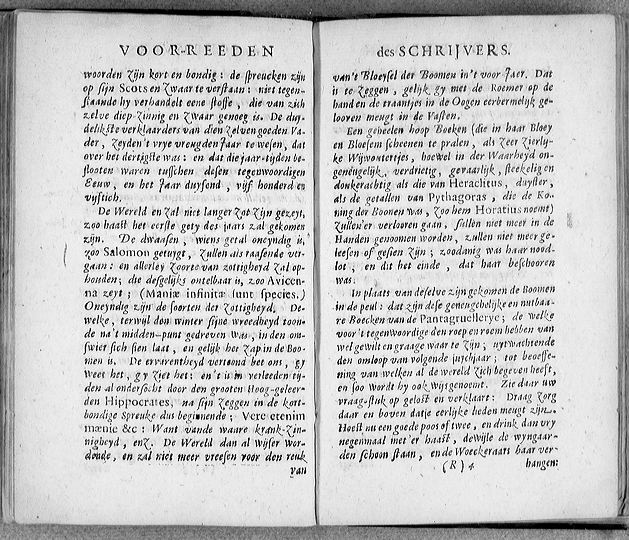 VOOR-REEDEN
woorden zijn kort en bondig: de spreucken zijn
op sijn Scots en Zwaar te verstaan: niet tegen-
staande hy verhandelt eene stoffe, die van zich
zelve diep-zinnig en zwaar genoeg is. De duy-
delikste verklaarders van dien zelven goeden Va-
der, zeyden't vrye vreugden Jaar te wesen, dat
over het dertigste was: en dat die jaar-tijden be-
slooten waren tusschen desen tegenwoordigen
Eeuw, en het Jaar duysend, vijf honderd en
vijftich.
De Wereld en zal niet langer zot zijn gezeyt,
zoo haast het eerste gety des jaars zal gekomen
zijn. De dwaasen, wiens getal oneyndig is,
zoo Salomon getuygt, zullen als raasende ver-
gaan: en allerley zoorte van zottigheyd zal op-
houden; die desgelijks ontelbaar is, zoo Avicen-
na zeyt; (Maniæ infinitæ sunt species.)
Oneyndig zijn de soorten der zottigheyd. De-
welke, terwijl don winter sijne wreedheyd toon-
de na't midden-punt gedreven was, in den om-
swier sich sien laat, en gelijk het zap in de Boo-
men is. De ervarentheyd vertoond het ons, gy
weet het, gy ziet het: en't is in verleeden tij-
den al ondersocht door den grooten Hoog-geleer-
den Hippocrates, na sijn zeggen in de kort-
bondige Spreuke dus beginnende; Vere etenim
mæniæ &c: Want vande waare krank-zin-
nigheyd, enz. De Wereld dan al wijser wor-
dende, en zal niet meer vreesen voor den reuk
van
des SCHRIJVERS.
van't Bloeysel der Boomen in't voor-Jaer. Dat
is te zeggen, gelijk gy met de Roemer op de
hand en de traantjes in de Oogen eerbermelijk ge-
looven meugt in de Vasten.
Een geheelen hoop Boeken (die in haar Bloey
en Bloesem scheenen te pralen, als zeer zierly-
ke Wijvontertjes, hoewel in der Waarheyd on-
geneugelijk, verdrietig, gevaarlijk, steekelig en
donkerachtig als die van Heraclitus, duyster,
als de getallen van Pythagoras, die de Ko-
ning der Boonen was, zoo hem Horatius noemt)
Zullen'er verlooren gaan, sullen niet meer in de
Handen genoomen worden, zullen niet meer ge-
leesen of gesien zijn; zoodanig was haar nood-
lot, en dit het einde, dat haar beschooren
was.
In plaats van deselve zijn gekomen de Boomen
in de peul: dat zijn dese geneugbelijke en nutbaa-
re Boecken van de Pantagruellerye; de welke
voor't tegenwoordige den roep en roem hebben van
wel gewilt en graage waar te zijn; uytwachtende
den omloop van volgende juychjaar; tot beoeffe-
ning van welken al de wereld zich begeven heeft,
en soo wordt hy ook wijs genoemt. Zie daar uw
vraag-stuk op gelost en verklaart: Draag zorg
daar en boven datje eerlijke lieden meugt zijn.
Hoest nu een goede poos of twee, en drink dan vry
negenmaal met'er haast, dewijle de wyngaar-
den schoon staan, en de Woeckeraars haar ver-
(R) 4 hangen: